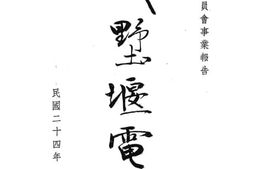 員會事業報告
墅堰電
民國二十四年